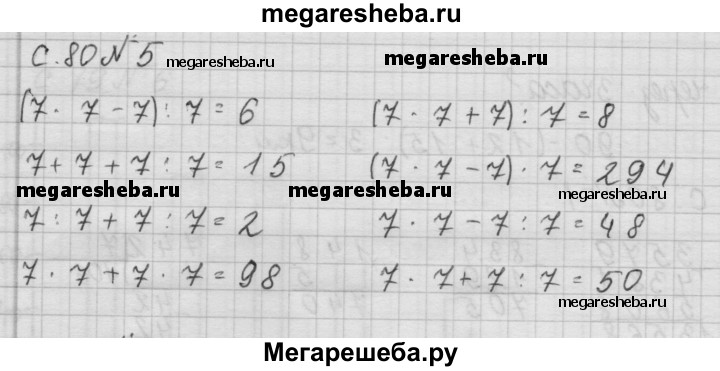 megaresheba.ru
с.80 №5 megaresheba.ru megaresheba.ru
(7 · 7 - 7) : 7 = 6 (7 · 7 + 7) : 7 = 8
7 + 7 + 7 : 7 = 15 (7 · 7 - 7) · 7 = 294
megaresheba.ru megaresheba.ru megaresheba.ru
7 : 7 + 7 : 7 = 2 7 · 7 - 7 : 7 = 48
megaresheba.ru megaresheba.ru
7 · 7 + 7 · 7 = 98 7 · 7 + 7 : 7 = 50
megaresheba.ru
Мегарешеба.ру